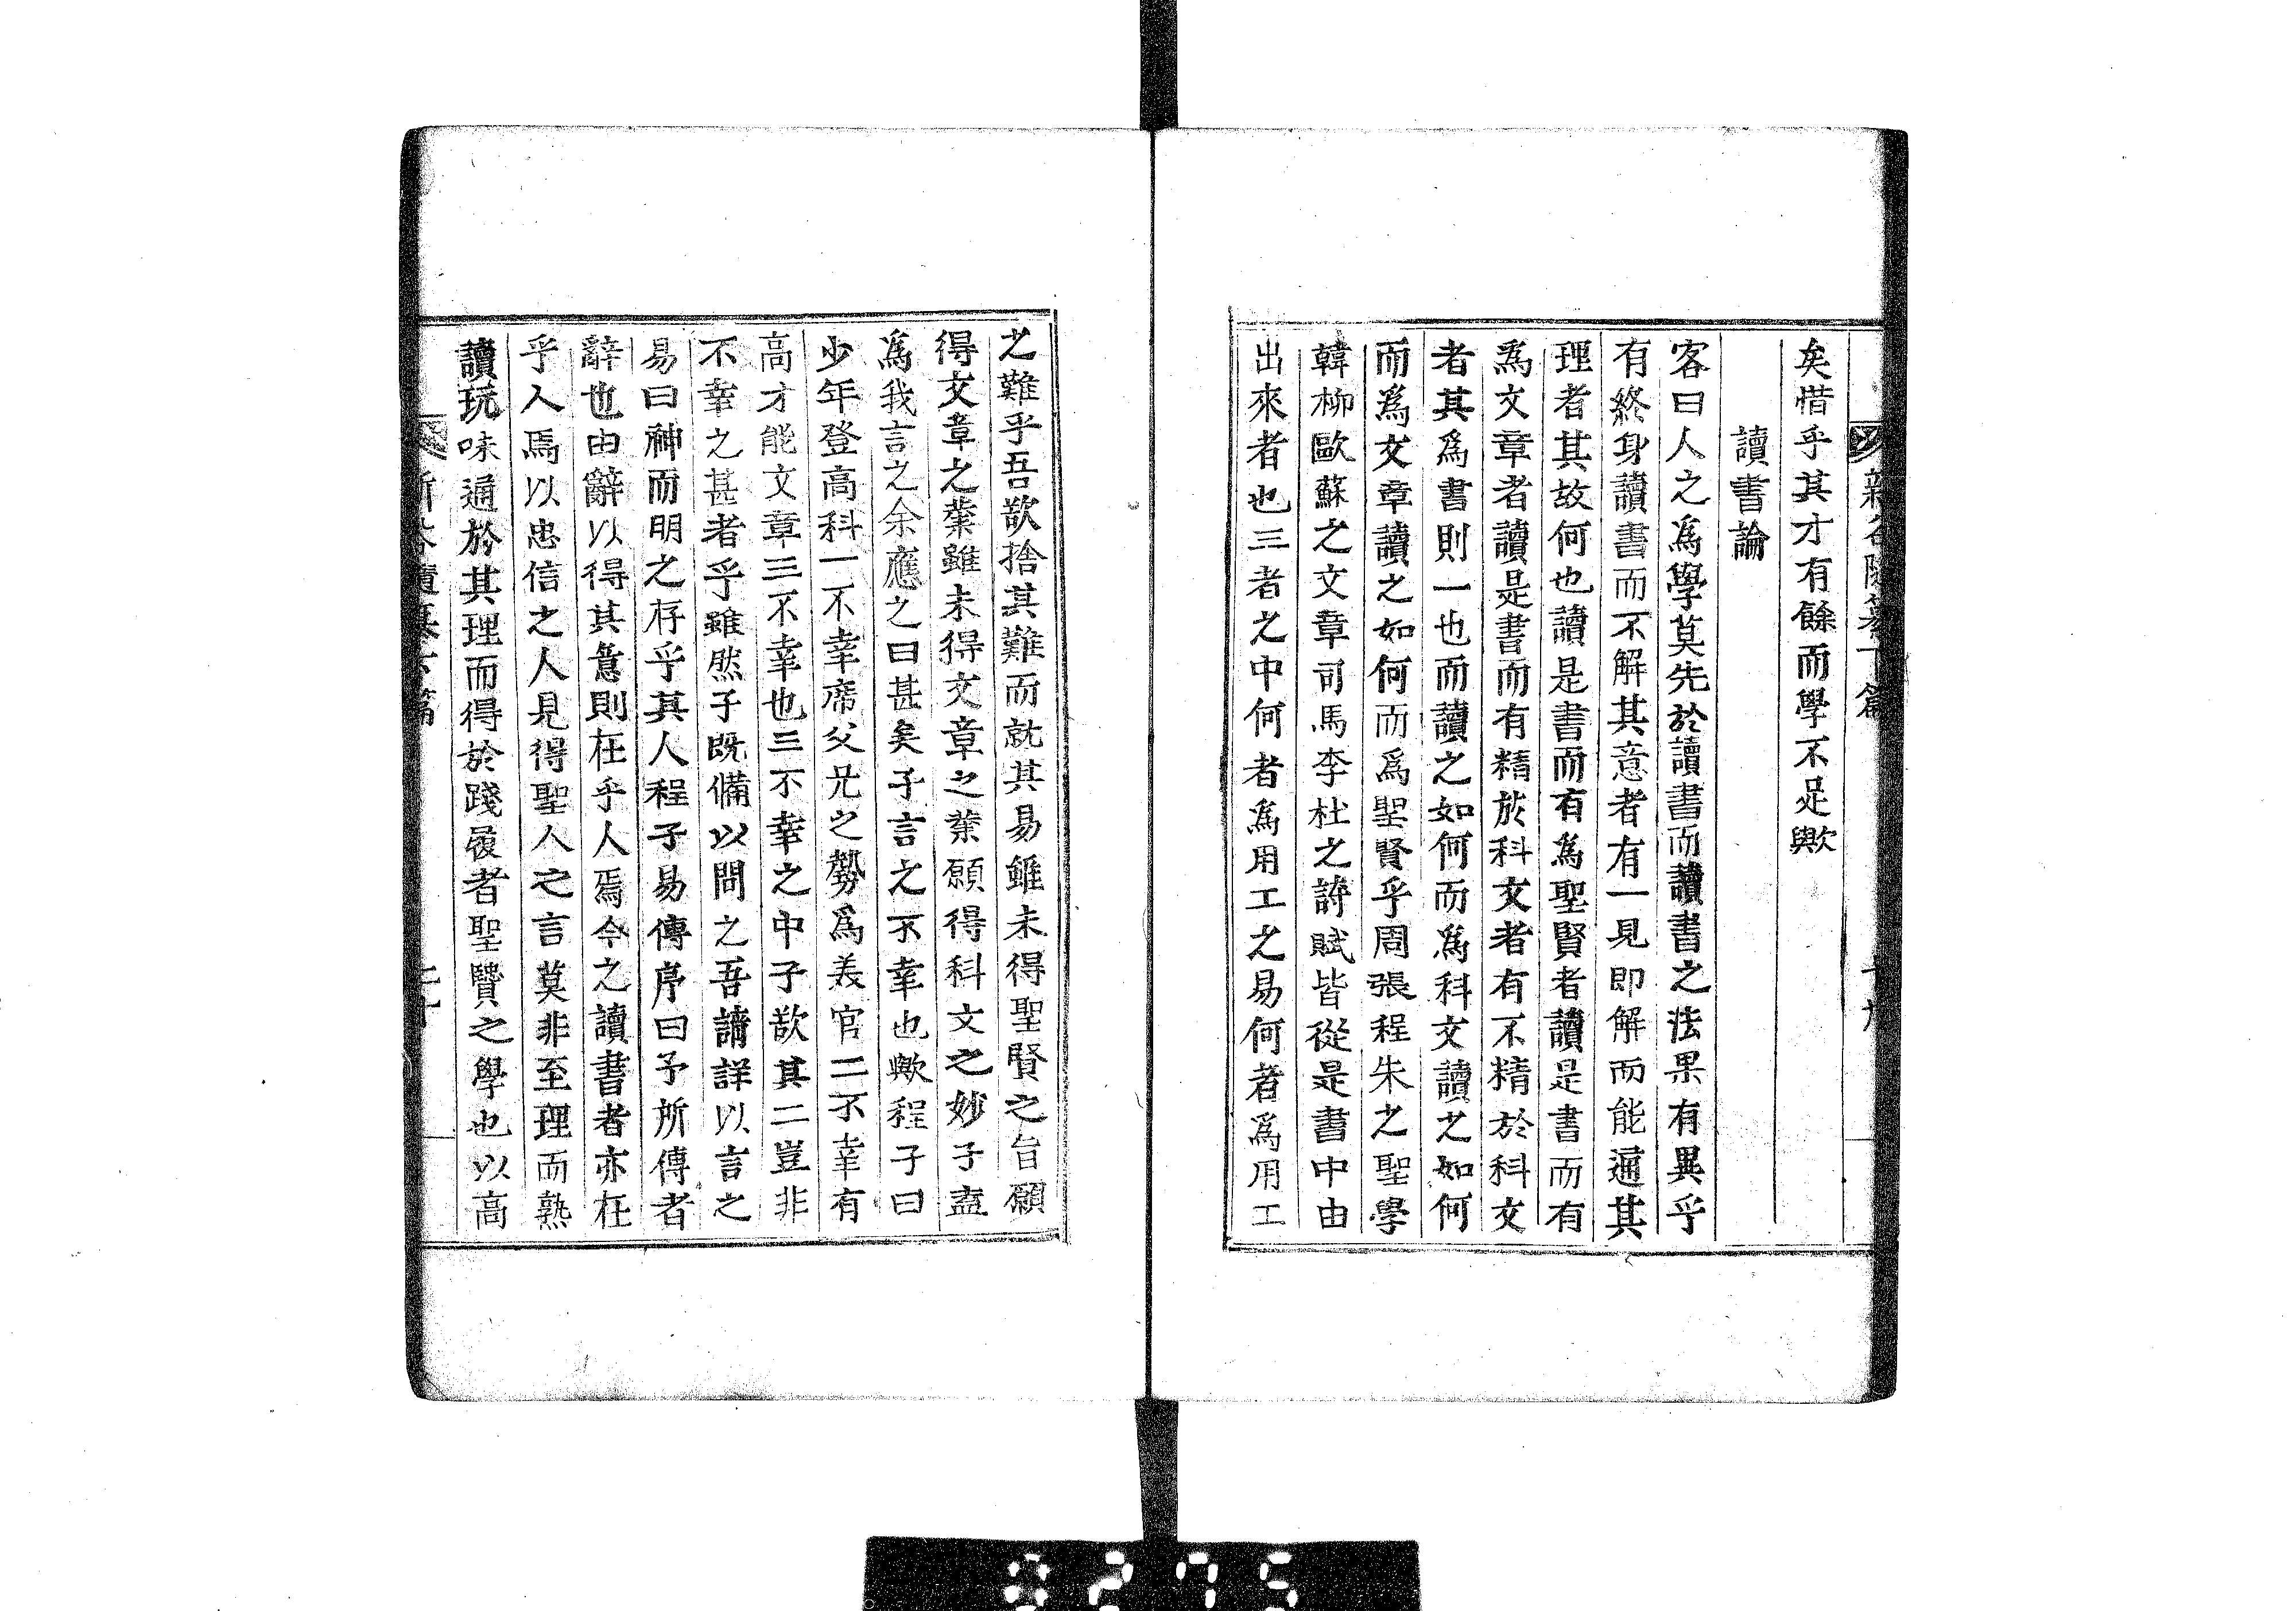 矣惜乎其才有餘而學不足歟
讀書論
客曰人之爲學莫先於讀書而讀書之法果有異乎
有終身讀書而不解其意者有一見即解而能通其
理者其故何也讀是書而有爲聖賢者讀是書而有
爲文章者讀是書而有精於科文者有不精於科文
者其爲書則一也而讀之如何而爲科文讀之如何
而爲文章讀之如何而爲聖賢乎周張程朱之聖學
韓柳歐蘇之文章司馬李杜之詩賦皆從是書中由
出來者也三者之中何者爲用工之易何者爲用工
之難乎吾欲捨其難而就其易雖未得聖賢之旨願
得文章之業雖未得文章之業願得科文之妙子盍
爲我言之余應之曰甚矣子言之不幸也歟程子曰
少年登高科一不幸席父兄之勢爲美官二不幸有
高才能文章三不幸也三不幸之中子欲其二豈非
不幸之甚者乎雖然子既備以問之吾請詳以言之
易曰神而明之存乎其人程子易傳序曰予所傳者
辭也由辭以得其意則在乎人焉今之讀書者亦在
乎人焉以忠信之人見得聖人之言莫非至理而熟
讀玩味通於其理而得於踐履者聖賢之學也以高
8275